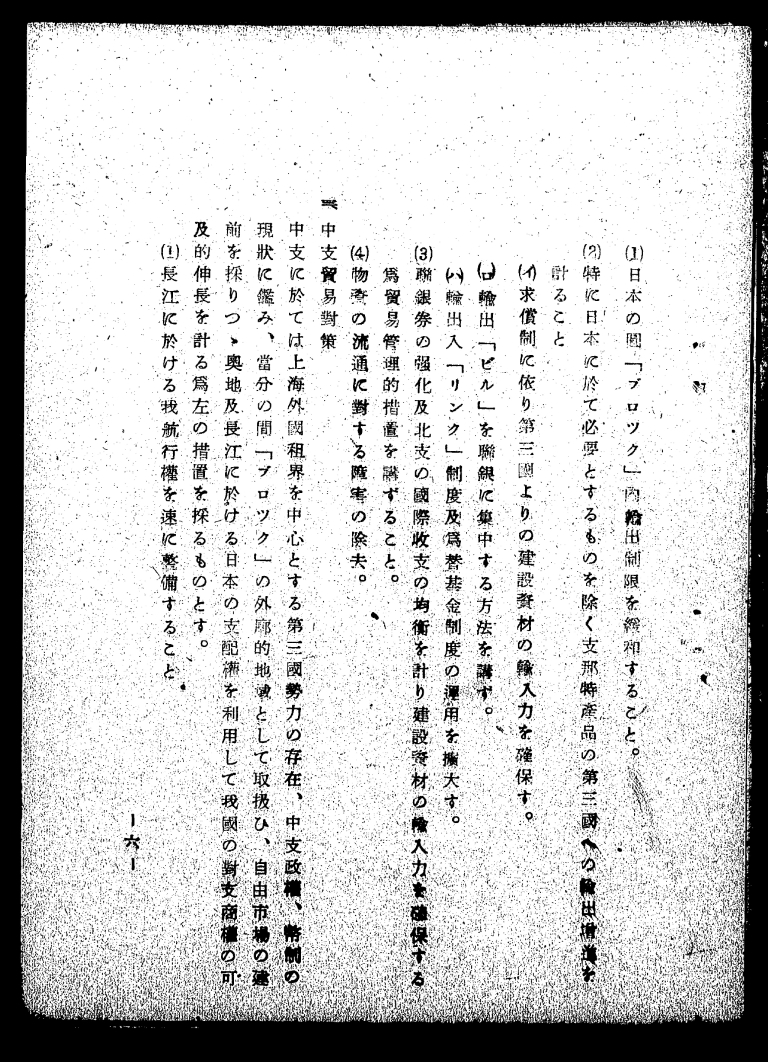 (1)日本の圓「ブロツク」內輸出制限を緩和すること。
(2)特に日本に於て必要とするものを除く支那特產品の第三國への輸出增進を
計ること
(イ)求償制に依り第三國よりの建設資材の輸入力を確保す。
(ロ)輸出「ビル」を聯銀に集中する方法を講ず。
(ハ)輸出入「リンク」制度及爲替基金制度の運用を擴大す。
(3)聯銀券の强化及北支の國際收支の均衡を計り建設資材の輸入力を確保する
爲貿易管理的措置を講ずること。
(4)物資の流通に對する障害の除去。
中支貿易對策
中支に於ては上海外國租界を中心とする第三國勢力の存在、中支政權、幣制の
現狀に鑑み、當分の間「ブロツク」の外廓的地域として取扱ひ、自由市場の建
前を採りつゝ奧地及長江に於ける日本の支配權を利用して我國の對支商權の可
及的伸長を計る爲左の措置を採るものとす。
(1)長江に於ける我航行權を速に整備すること
―六―